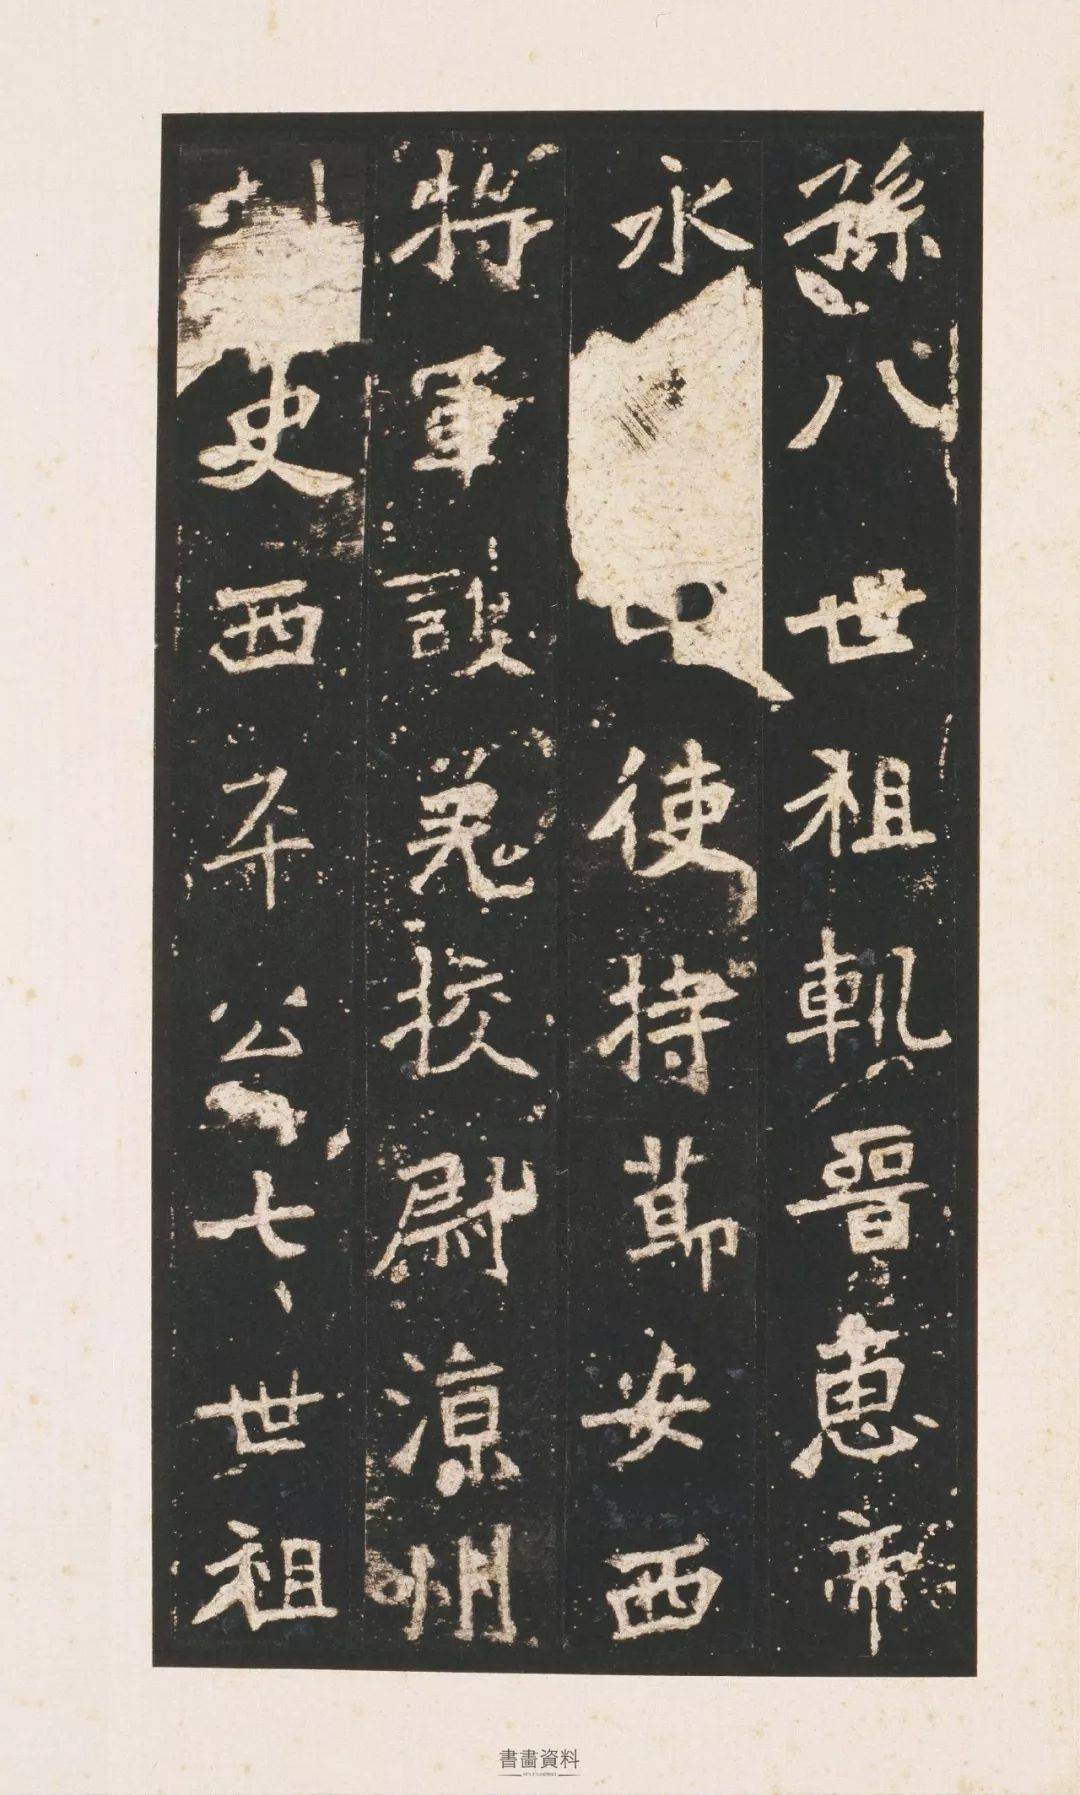 孫八世祖軌晉惠帝
永使持節安西
將軍護羌校尉涼州
史西平公七世祖
書畫資料